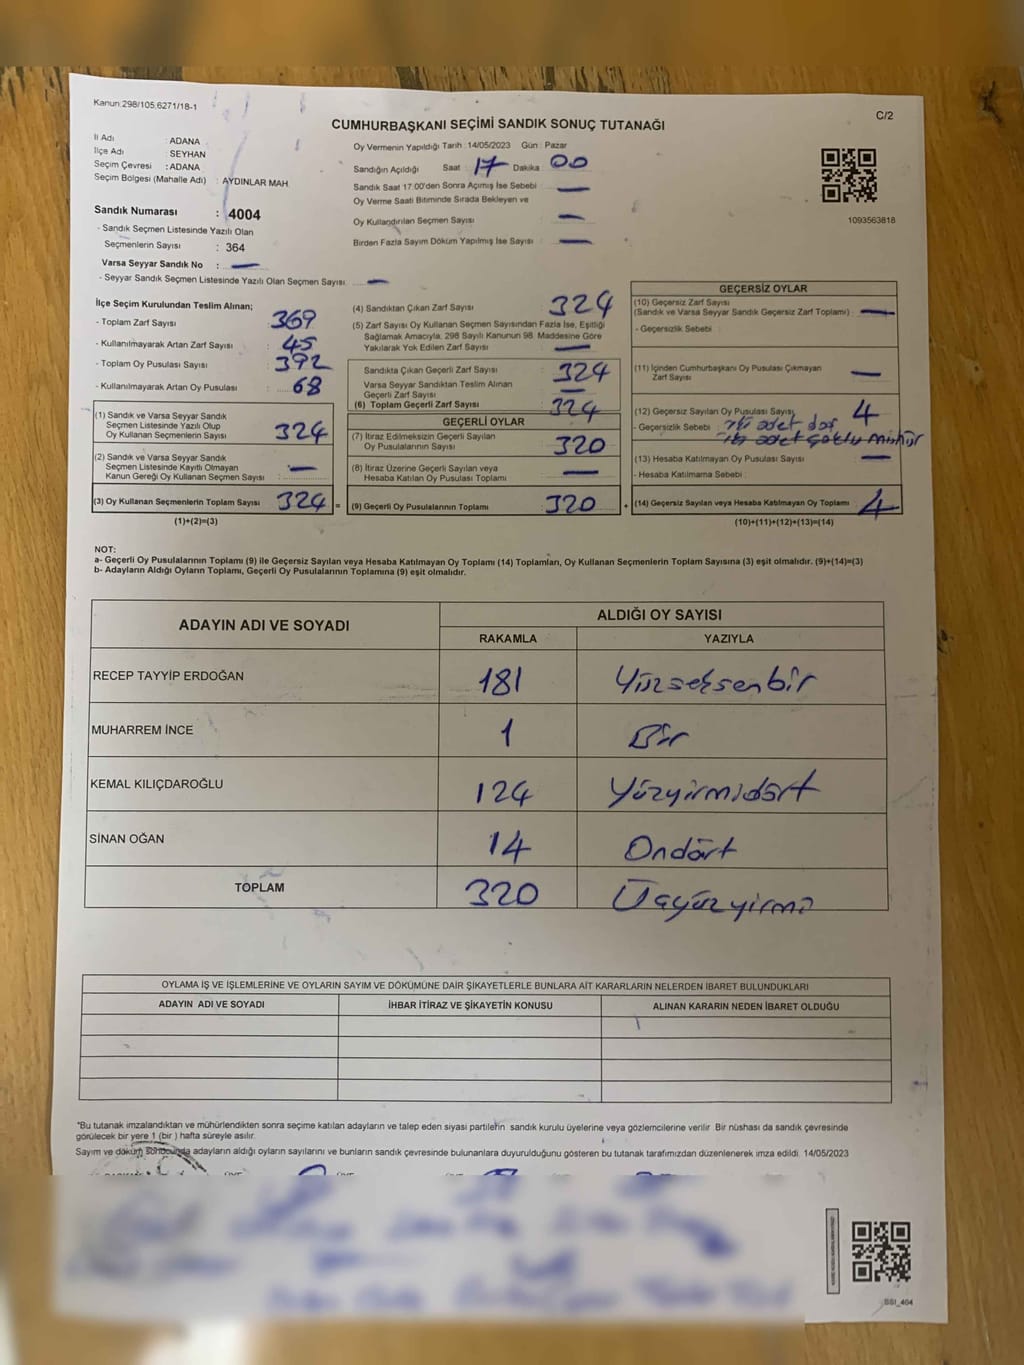 Kanun:298/105,6271/18-1
C/2
CUMHURBAŞKANI SEÇİMİ SANDIK SONUÇ TUTANAĞI
İl Adı : ADANA
İlçe Adı : SEYHAN
Seçim Çevresi : ADANA
Seçim Bölgesi (Mahalle Adı) : AYDINLAR MAH.
Oy Vermenin Yapıldığı Tarih :14/05/2023 Gün : Pazar
Sandığın Açıldığı Saat : 17 Dakika : 00
Sandık Saat 17:00'den Sonra Açılmış İse Sebebi : —
Oy Verme Saati Bitiminde Sırada Bekleyen ve
Oy Kullandırılan Seçmen Sayısı : —
Birden Fazla Sayım Döküm Yapılmış İse Sayısı : —
1093563818
Sandık Numarası : 4004
- Sandık Seçmen Listesinde Yazılı Olan
Seçmenlerin Sayısı : 364
Varsa Seyyar Sandık No : —
- Seyyar Sandık Seçmen Listesinde Yazılı Olan Seçmen Sayısı: —
İlçe Seçim Kurulundan Teslim Alınan;
- Toplam Zarf Sayısı : 369
- Kullanılmayarak Artan Zarf Sayısı : 45
- Toplam Oy Pusulası Sayısı : 392
- Kullanılmayarak Artan Oy Pusulası : 68
(1) Sandık ve Varsa Seyyar Sandık
Seçmen Listesinde Yazılı Olup
Oy Kullanan Seçmenlerin Sayısı : 324
(2) Sandık ve Varsa Seyyar Sandık
Seçmen Listesinde Kayıtlı Olmayan
Kanun Gereği Oy Kullanan Seçmen Sayısı : —
(3) Oy Kullanan Seçmenlerin Toplam Sayısı : 324 =
(1)+(2)=(3)
(4) Sandıktan Çıkan Zarf Sayısı : 324
(5) Zarf Sayısı Oy Kullanan Seçmen Sayısından Fazla İse, Eşitliği
Sağlamak Amacıyla, 298 Sayılı Kanunun 98. Maddesine Göre
Yakılarak Yok Edilen Zarf Sayısı : —
Sandıkta Çıkan Geçerli Zarf Sayısı : 324
Varsa Seyyar Sandıktan Teslim Alınan
Geçerli Zarf Sayısı : —
(6) Toplam Geçerli Zarf Sayısı : 324
GEÇERLİ OYLAR
(7) İtiraz Edilmeksizin Geçerli Sayılan
Oy Pusulalarının Sayısı : 320
(8) İtiraz Üzerine Geçerli Sayılan veya
Hesaba Katılan Oy Pusulası Toplamı : —
(9) Geçerli Oy Pusulalarının Toplamı : 320 +
GEÇERSİZ OYLAR
(10) Geçersiz Zarf Sayısı
(Sandık ve Varsa Seyyar Sandık Geçersiz Zarf Toplamı) : —
- Geçersizlik Sebebi :
(11) İçinden Cumhurbaşkanı Oy Pusulası Çıkmayan
Zarf Sayısı : —
(12) Geçersiz Sayılan Oy Pusulası Sayısı : 4
- Geçersizlik Sebebi : iki adet boş
iki adet çoklu mühür
(13) Hesaba Katılmayan Oy Pusulası Sayısı : —
- Hesaba Katılmama Sebebi :
(14) Geçersiz Sayılan veya Hesaba Katılmayan Oy Toplamı : 4
(10)+(11)+(12)+(13)=(14)
NOT:
a- Geçerli Oy Pusulalarının Toplamı (9) ile Geçersiz Sayılan veya Hesaba Katılmayan Oy Toplamı (14) Toplamları, Oy Kullanan Seçmenlerin Toplam Sayısına (3) eşit olmalıdır. (9)+(14)=(3)
b- Adayların Aldığı Oyların Toplamı, Geçerli Oy Pusulalarının Toplamına (9) eşit olmalıdır.
ADAYIN ADI VE SOYADI
ALDIĞI OY SAYISI
RAKAMLA YAZIYLA
RECEP TAYYİP ERDOĞAN 181 Yüzseksenbir
MUHARREM İNCE 1 Bir
KEMAL KILIÇDAROĞLU 124 Yüzyirmidört
SİNAN OĞAN 14 Ondört
TOPLAM 320 Üçyüzyirmi
OYLAMA İŞ VE İŞLEMLERİNE VE OYLARIN SAYIM VE DÖKÜMÜNE DAİR ŞİKAYETLERLE BUNLARA AİT KARARLARIN NELERDEN İBARET BULUNDUKLARI
ADAYIN ADI VE SOYADI İHBAR İTİRAZ VE ŞİKAYETİN KONUSU ALINAN KARARIN NEDEN İBARET OLDUĞU
*Bu tutanak imzalandıktan ve mühürlendikten sonra seçime katılan adayların ve talep eden siyasi partilerin sandık kurulu üyelerine veya gözlemcilerine verilir. Bir nüshası da sandık çevresinde
görülecek bir yere 1 (bir ) hafta süreyle asılır.
Sayım ve döküm sonucunda adayların aldığı oyların sayılarını ve bunların sandık çevresinde bulunanlara duyurulduğunu gösteren bu tutanak tarafımızdan düzenlenerek imza edildi. 14/05/2023
BSI_404